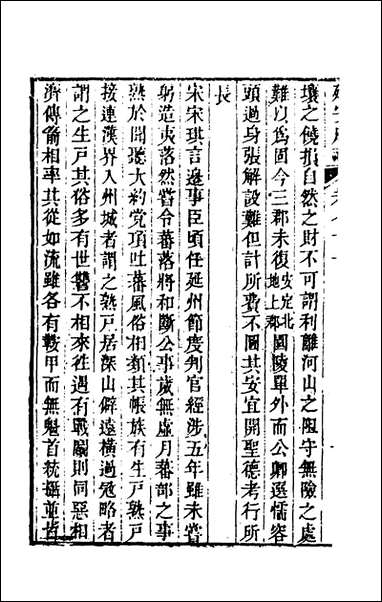 壤之饒損自然之財不可謂利離河山之阻守無險之處
難以爲固今三郡未復安定北地上郡園陵單外而公卿選懦容
頭過身張解設難但計所費不圖其安宜開聖德考行所
長
宋宋琪言邊事臣頃任延州節度判官經涉五年雖未嘗
躬造夷落然嘗令蕃落將和斷公事歲無虛月蕃部之事
熟於聞聽大約党項吐蕃風俗相類其帳族有生戸熟戸
接連漢界入州城者謂之熟戸居深山僻遠橫過冦略者
謂之生戸其俗多有世讐不相來往遇有戰鬬則同惡相
濟傳箭相率其從如流雖各有鞍甲而無魁首統攝並皆